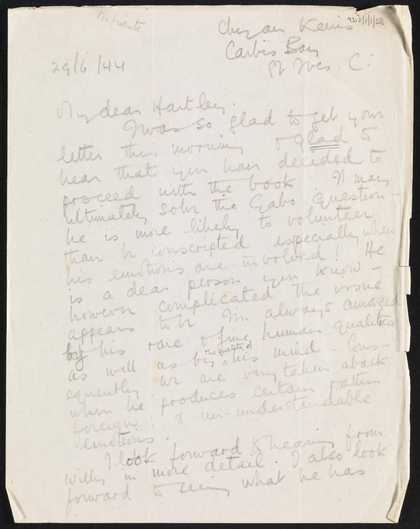 Private
Chy an Kerris
Carbis Bay
St Ives C:
29/6/44
My dear Hartley.
I was so glad to get your
letter this morning & glad to
hear that you have decided to
proceed with the book. It may
ultimately solve the Gabo question –
he is more likely to volunteer
than be conscripted especially when
his emotions are involved! He
is a dear person you know –
however complicated the
appears to be I'm always amazed
by his rare & fine human qualities
as well as by the quality of his mind. Cons-
equently we are very taken aback
when he produces certain rather
foreign & un-understandable
emotions.
I look forward to hearing from
willy in more detail. I also look
forward to seeing what he has